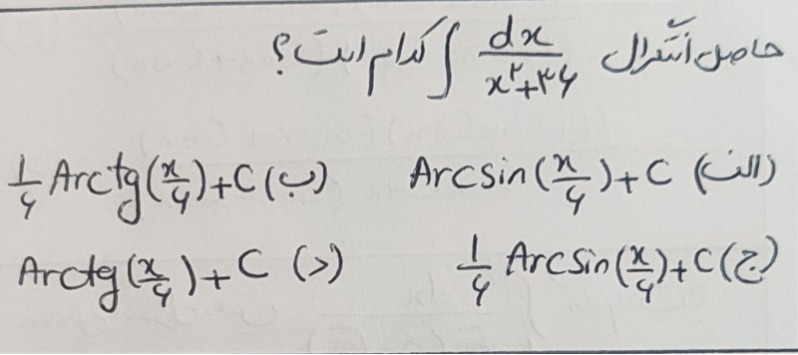 حاصل انتگرال ∫ dx/(x²+۳۶) کدام است؟
الف) Arcsin(x/۶)+C ب) ۱/۶ Arctg(x/۶)+C
ج) ۱/۶ Arcsin(x/۶)+C د) Arctg(x/۶)+C